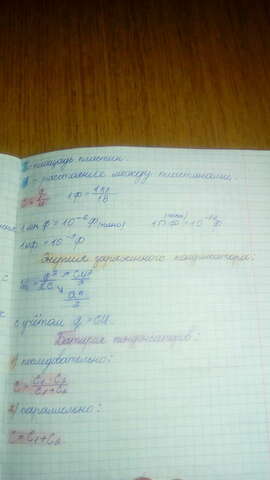 S - площадь пластин.
d - расстояние между пластинами.
C = q/U 1Ф = 1Кл/1В
1 мкФ = 10⁻⁶ Ф (нано) 1пФ (пико) = 10⁻¹² Ф
1нФ = 10⁻⁹ Ф
Энергия заряженного конденсатора:
W = q²/2C = CU²/2
qU/2
с учётом q = CU.
Батарея конденсаторов:
1) последовательно:
C = C₁·C₂/C₁+C₂
2) параллельно:
C = C₁+C₂